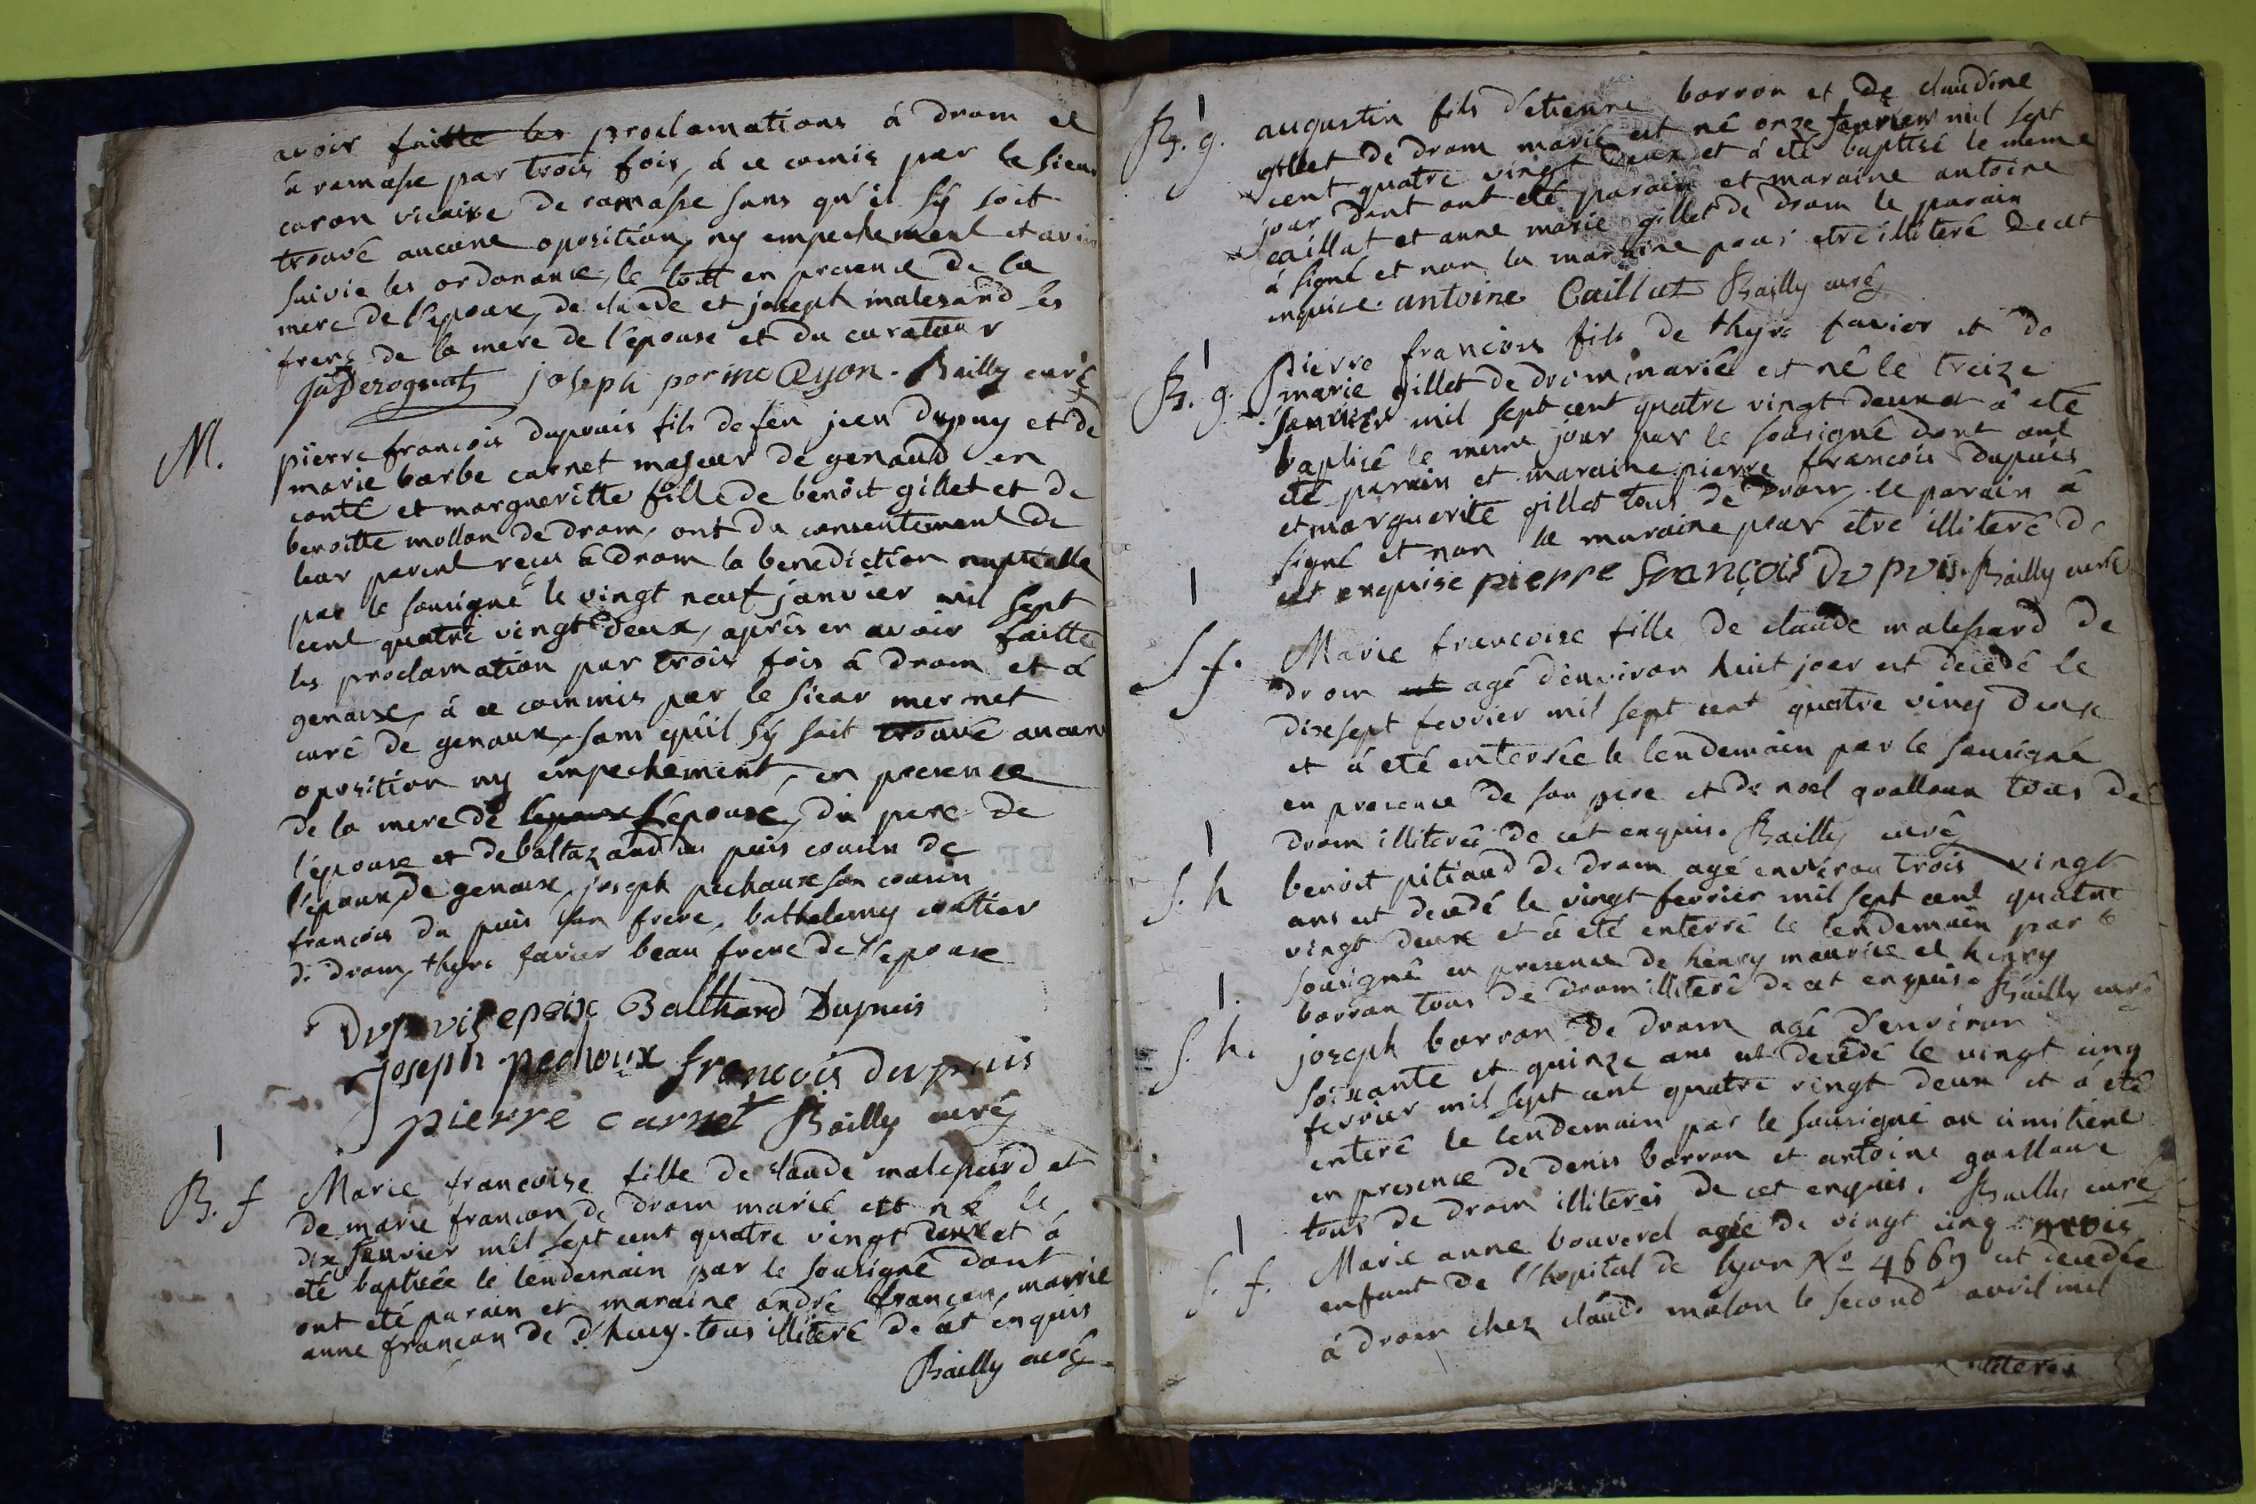 avoir faitte les proclamations à drom et
a ramasse par trois fois, à ce comis par le sieur
caron vicaire de ramasse sans qu'il sy soit
trouvé aucune oposition, ny empechement et avoir
suivie les ordonance, le tout en presence de la
mere de l'epoux, de claude et joseph malessard les
frere de la mere de l'epouse et du curateur
joseph Bailly curé
M.
pierre francois dupuis fils de feu jean dupuy et de
marie barbe carnet majeur de genaud en
conté et margueritte fille de benoit gillet et de
benoitte mollon de drom, ont du consentement de
leur parent reçu à drom la benediction nuptialle
par le sousigné le vingt neuf janvier mil sept
cent quatre vingt deux, après en avoir faitte
les proclamation par trois fois à drom et à
genaux, à ce commis par le sieur mermet
curé de genaux, sans qu'il sy soit trouvé aucune
oposition ny empechement, en presence
de la mere de l'epouse, du pere de
l'épouse et de baltazard du puis cousin de
l'epoux de genaux, joseph pechaux son cousin
francois du puis son frere, bathelemy
de drom, thyre favier beau frere de l'epouse
Dupuis epoix Balthard Dupuis
joseph pechoux francois dupuis
pierre carnet Bailly curé
1
B. f
Marie francoise fille de claude malessard et
de marie francon de drom marié est né le
dix janvier mil sept cent quatre vingt deux et à
eté baptisée le lendemain par le sousigné dont
ont eté parain et maraine andré francon, marie
anne francon de d'heuy. tous illiteré de cet enquis
Bailly curé
1
B. g.
augustin fils d'etienne borron et de claudine
gillet de drom marié est né onze janvier mil sept
cent quatre vingt deux et à eté baptisé le meme
jour dont ont eté parain et maraine antoine
caillat et anne marie gillet de drom le parain
à signé et non la maraine pour etre illiteré de cet
enquise. antoine Caillat Bailly curé
1
B. g.
Pierre francois fils de thyre favier et de
marie gillet de drom marié est né le treize
janvier mil sept cent quatre vingt deux et à eté
baptisé le meme jour par le sousigné dont ont
eté parain et maraine pierre francois dupuis
et marguerite gillet tous de drom, le parain à
signé et non la maraine pour etre illiteré de
cet enquise pierre françois dupuis. Bailly curé
1
S f.
Marie francoise fille de claude malessard de
drom agé d'environ huit jour est decedé le
dixsept fevrier mil sept cent quatre ving deux
et à eté enterrée le lendemain par le sousigné
en presence de son pere et de noel goallaux tous de
drom illiteré de cet enquis. Bailly curé
1
S. h
benoit pitiaud de drom agé environ trois vingt
ans est decedé le vingt fevrier mil sept cent quatre
vingt deux et à eté enterré le lendemain par le
sousigné en presence de henry maurice et henry
borron tous de drom illiteré de cet enquis. Bailly curé
1.
S. h.
joseph borron de drom agé d'environ
soixante et quinze ans est decédé le vingt cinq
fevrier mil sept cent quatre vingt deux et à eté
enteré le lendemain par le sousigné au cimitiere
en presence de denis borron et antoine goallaux
tous de drom illiterés de cet enquis. Bailly curé
1
S. f.
Marie anne bouverel agée de vingt cinq mois
enfant de l'hopital de lyon No 4669 est decedée
à drom chez claude molon le second avril mil
illiterés